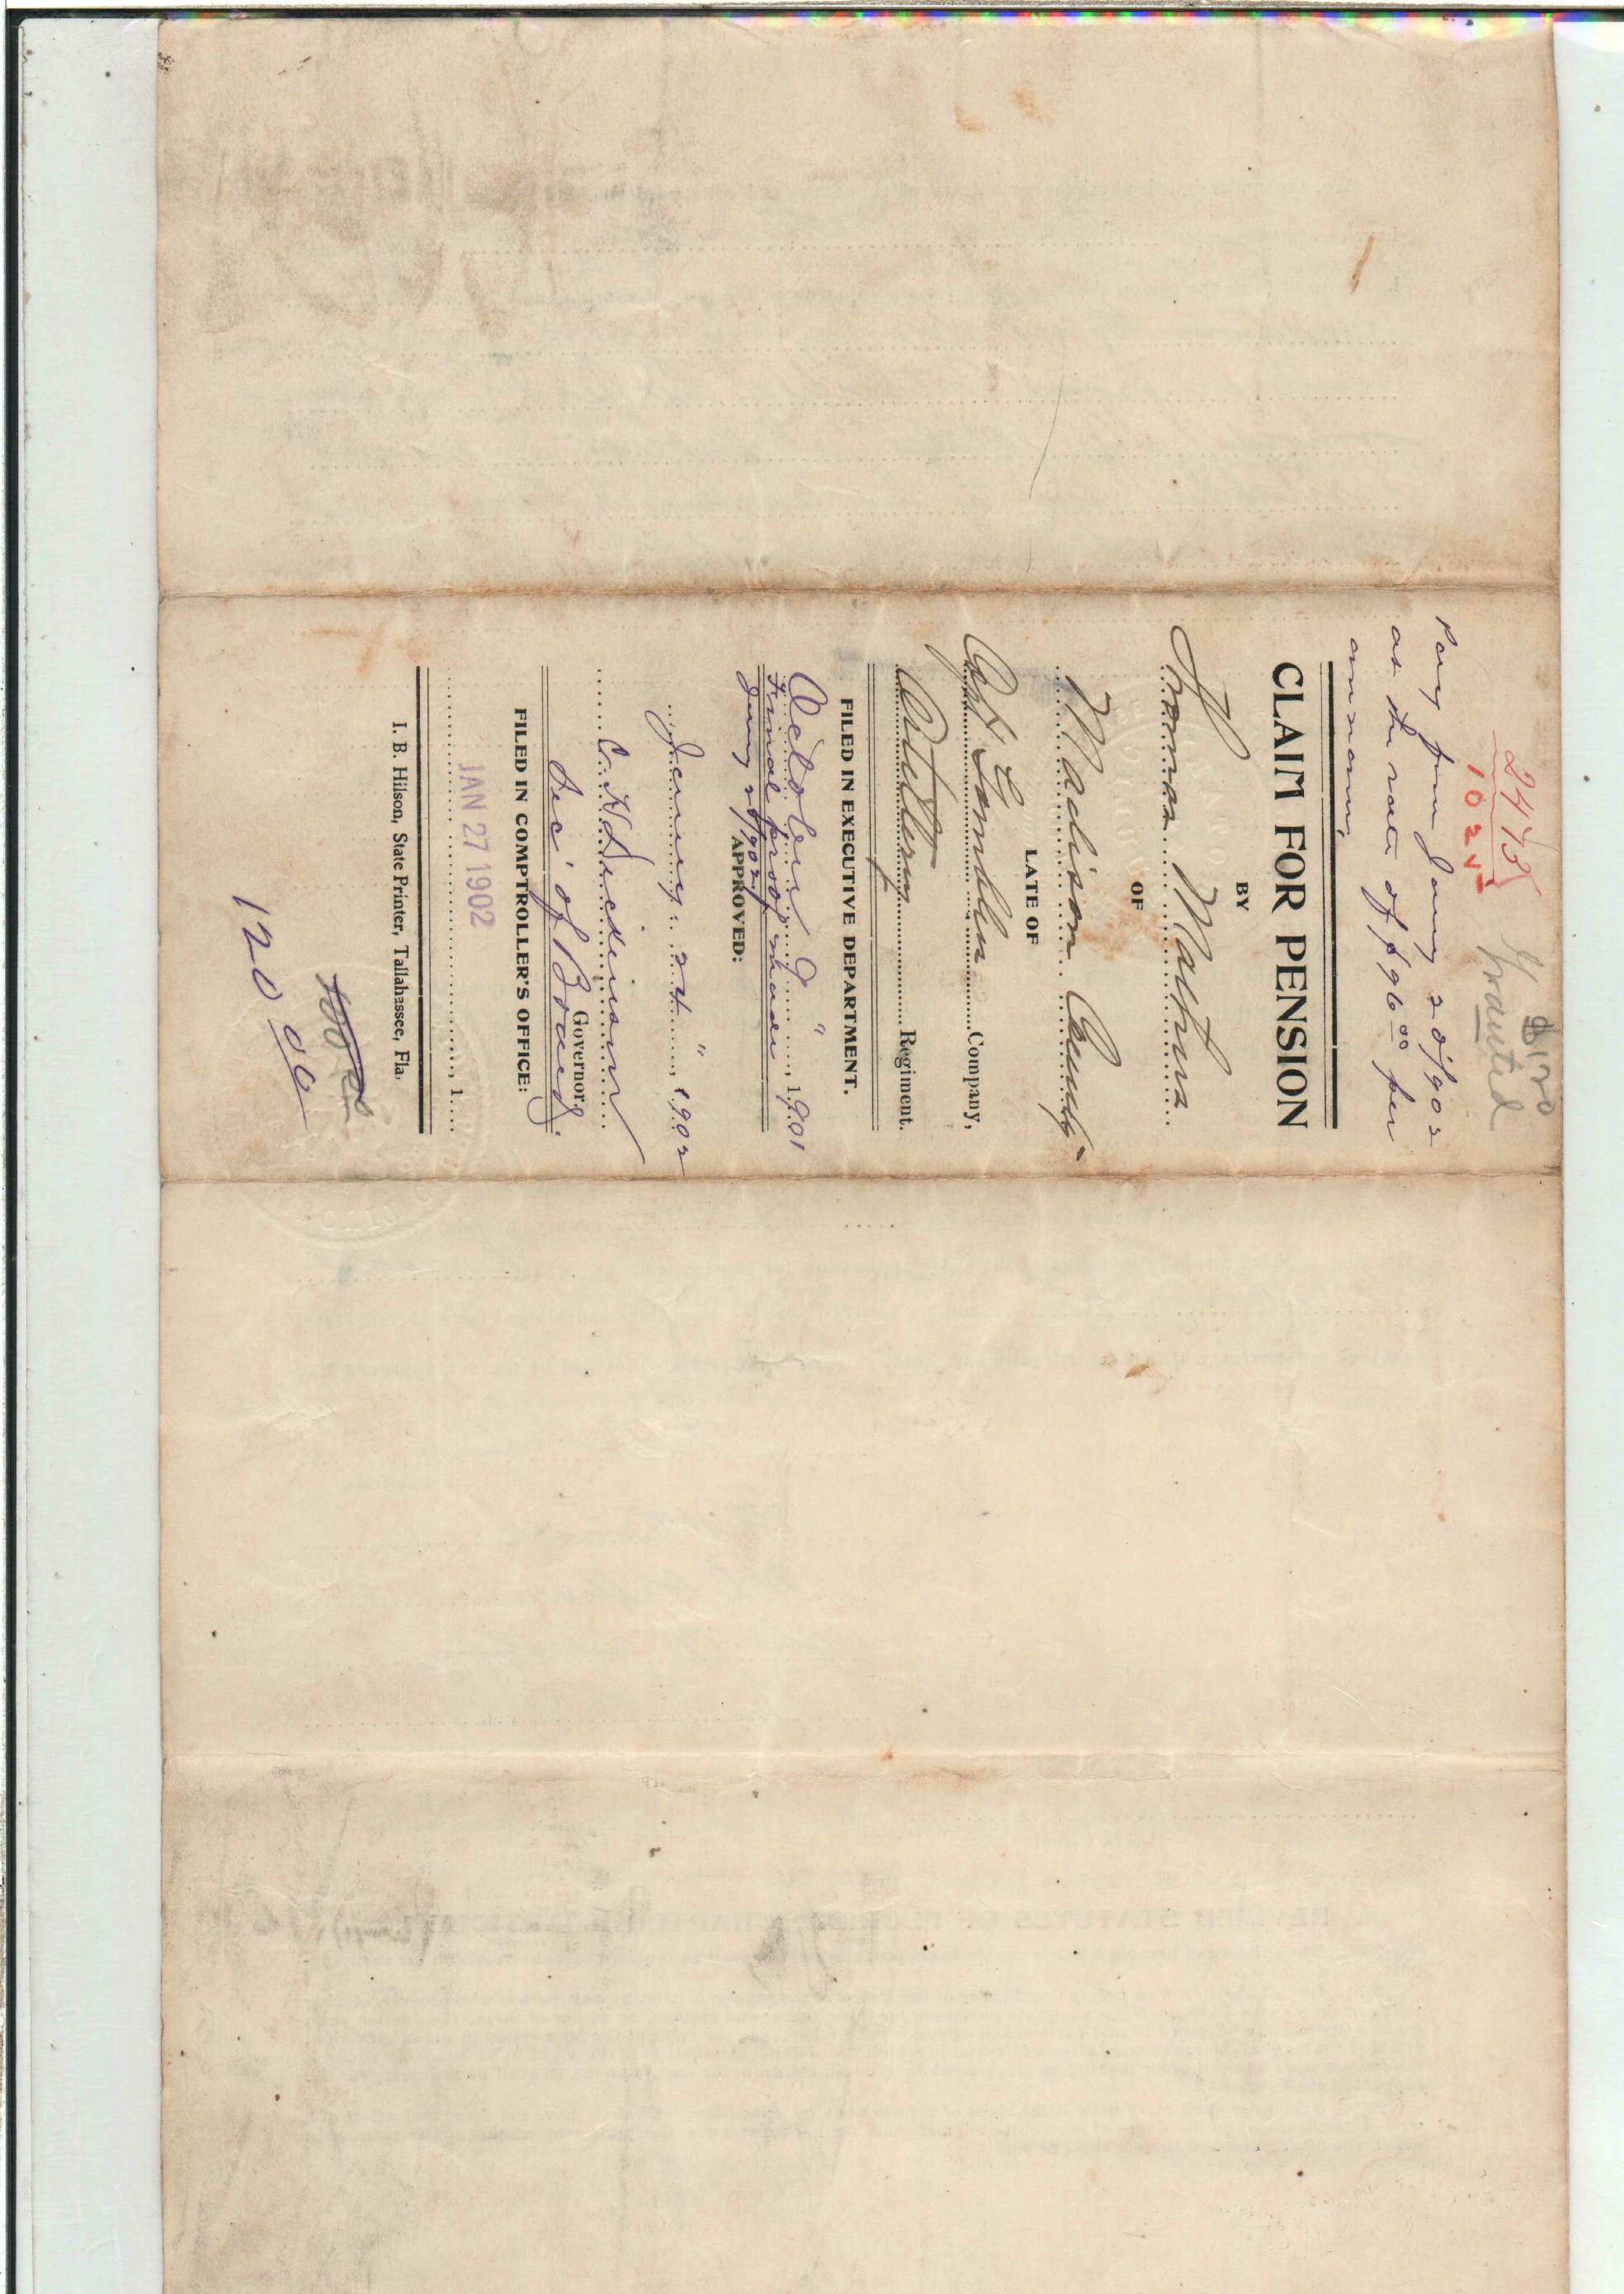 2443
1025
$120
Granted
Pay from Jany 20/902
at the rate of $96 00 per
annum
CLAIM FOR PENSION
BY
Thomas
OF
Madison County
LATE OF
Capt Company,
Artillery Regiment.
FILED IN EXECUTIVE DEPARTMENT.
October 9" 1901
Final proof made
Jany 20/902
APPROVED:
January 24", 1902
C. H. Dickinson
Governor.
Sec' of Board.
FILED IN COMPTROLLER'S OFFICE:
JAN 27 1902
, 1
I. B. Hilson, State Printer, Tallahassee, Fla.
120 00